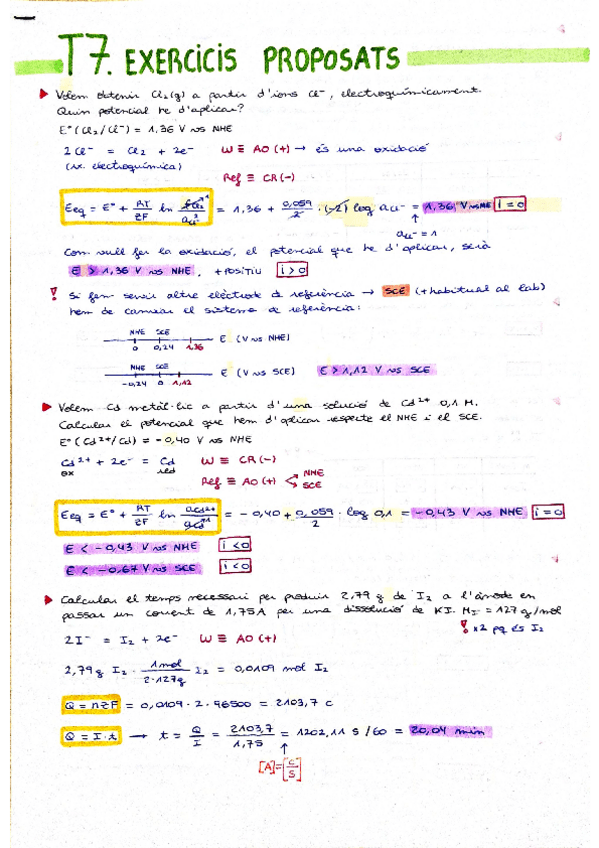 T7. EXERCICIS PROPOSATS
▶ Volem obtenir Cl₂(g) a partir d'ions Cl⁻, electroquímicament.
Quin potencial he d'aplicar?
E°(Cl₂/Cl⁻) = 1,36 V vs NHE
2Cl⁻ = Cl₂ + 2e⁻ W ≡ AO (+) → és una oxidació
(rx. electroquímica)
Ref ≡ CR (-)
Eeq = E° + RT/ZF ln fCl₂/a²Cl⁻ = 1,36 + 0,059/2 · (-2) log aCl⁻ = 1,36 V vs NHE i = 0
↑
aCl⁻ = 1
Com vull fer la oxidació, el potencial que he d'aplicar, serà
E > 1,36 V vs NHE. + POSITIU i > 0
! Si fem servir altre elèctrode de referència → SCE (+ habitual al lab)
hem de canviar el sistema de referència:
NHE SCE
0 0,24 1,36 E (V vs NHE)
NHE SCE
-0,24 0 1,12 E (V vs SCE) E > 1,12 V vs SCE
▶ Volem Cd metàl·lic a partir d'una solució de Cd²⁺ 0,1 M.
Calcular el potencial que hem d'aplicar respecte el NHE i el SCE.
E°(Cd²⁺/Cd) = -0,40 V vs NHE
Cd²⁺ + 2e⁻ = Cd W ≡ CR (-)
ox red
Ref ≡ AO (+) NHE
SCE
Eeq = E° + RT/ZF ln aCd²⁺/aCd = -0,40 + 0,059/2 · log 0,1 = -0,43 V vs NHE i = 0
E < -0,43 V vs NHE i < 0
E < -0,67 V vs SCE i < 0
▶ Calcular el temps necessari per produir 2,79 g de I₂ a l'ànode en
passar un corrent de 1,75 A per una dissolució de KI. MI = 127 g/mol
! x2 pq és I₂
2I⁻ = I₂ + 2e⁻ W ≡ AO (+)
2,79 g I₂ · 1 mol/2·127g I₂ = 0,0109 mol I₂
Q = nZF = 0,0109 · 2 · 96500 = 2103,7 C
Q = I·t → t = Q/I = 2103,7/1,75 = 1202,11 s /60 = 20,04 min
↑
[A] = [C/S]